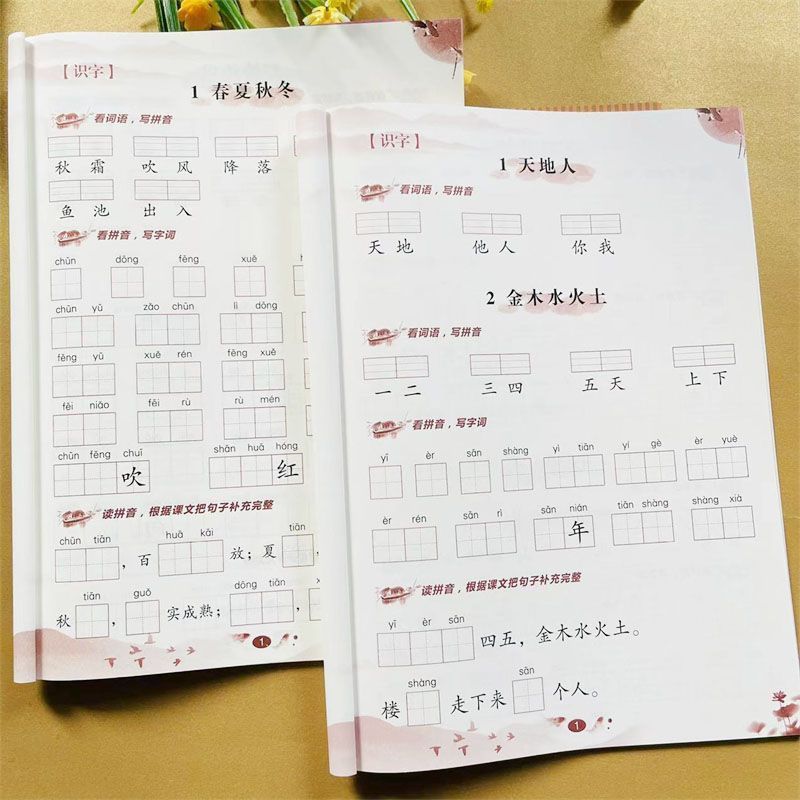 【识字】
1 春夏秋冬
看词语，写拼音
秋 霜 吹 风 降 落
鱼 池 出 入
看拼音，写字词
chūn dōng fēng xuě
chūn yǔ zǎo chūn lì dōng
fēng yǔ xuě rén fēng xuě
fēi niǎo fēi rù rù mén
chūn fēng chuī shān huā hóng
吹 红
读拼音，根据课文把句子补充完整
chūn tiān huā kāi tiān
，百 放；夏 ，
tiān guǒ dōng tiān
秋 ， 实成熟；
1
【识字】
1 天地人
看词语，写拼音
天 地 他 人 你 我
2 金木水火土
看词语，写拼音
一 二 三 四 五 天 上 下
看拼音，写字词
yī èr sān shàng yì tiān yí gè èr yuè
èr rén sān rì sān nián tiān shàng shàng xià
年
读拼音，根据课文把句子补充完整
yī èr sān
四五，金木水火土。
shàng sān
楼 走下来 个人。
1